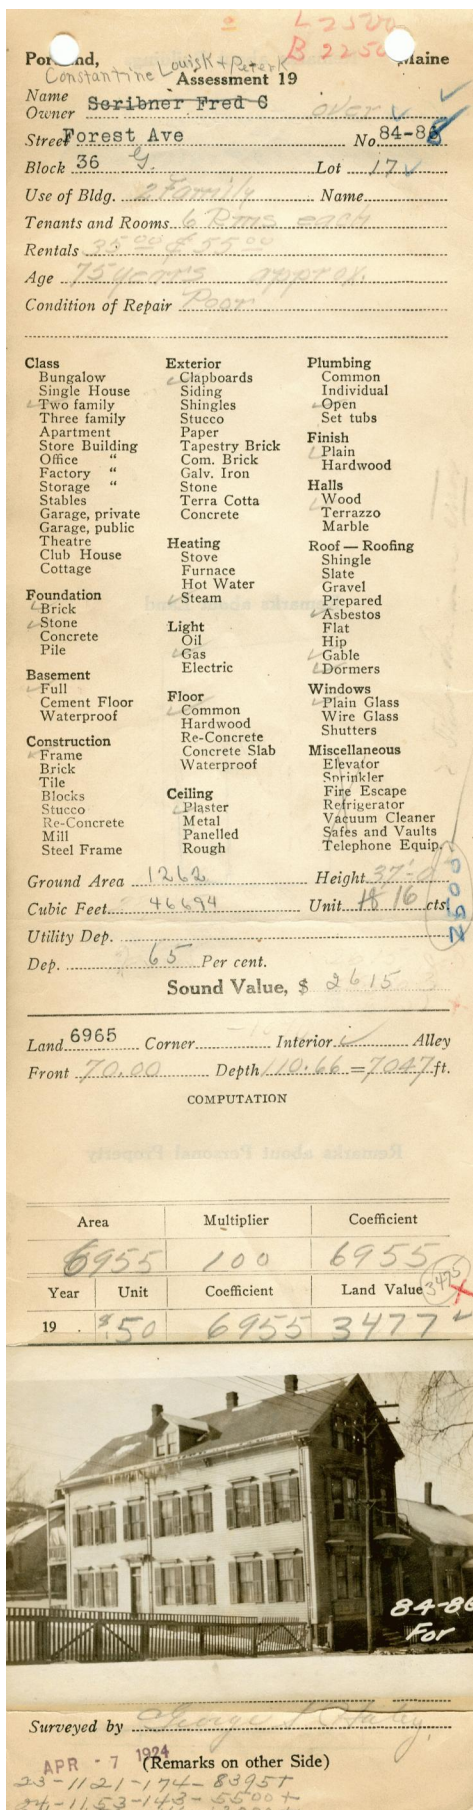 L 2500
B 2250
Portland, Maine
Constantine Louis K + Peter K
Assessment 19
Name
Owner Scribner Fred C over
Street Forest Ave No. 84-86
Block 36 G. Lot 17
Use of Bldg. 2 Family Name
Tenants and Rooms 6 Rms each
Rentals 35 00 & 55 00
Age 75 years approx.
Condition of Repair Poor
Class
Bungalow
Single House
Two family
Three family
Apartment
Store Building
Office "
Factory "
Storage "
Stables
Garage, private
Garage, public
Theatre
Club House
Cottage
Foundation
Brick
Stone
Concrete
Pile
Basement
Full
Cement Floor
Waterproof
Construction
Frame
Brick
Tile
Blocks
Stucco
Re-Concrete
Mill
Steel Frame
Exterior
Clapboards
Siding
Shingles
Stucco
Paper
Tapestry Brick
Com. Brick
Galv. Iron
Stone
Terra Cotta
Concrete
Heating
Stove
Furnace
Hot Water
Steam
Light
Oil
Gas
Electric
Floor
Common
Hardwood
Re-Concrete
Concrete Slab
Waterproof
Ceiling
Plaster
Metal
Panelled
Rough
Plumbing
Common
Individual
Open
Set tubs
Finish
Plain
Hardwood
Halls
Wood
Terrazzo
Marble
Roof — Roofing
Shingle
Slate
Gravel
Prepared
Asbestos
Flat
Hip
Gable
Dormers
Windows
Plain Glass
Wire Glass
Shutters
Miscellaneous
Elevator
Sprinkler
Fire Escape
Refrigerator
Vacuum Cleaner
Safes and Vaults
Telephone Equip.
2600
Ground Area 1262 Height 37'-0"
Cubic Feet 46694 Unit 16 cts.
Utility Dep.
Dep. 65 Per cent.
Sound Value, $ 2615
Land 6965 Corner Interior Alley
Front 70.00 Depth 110.66 = 7047 ft.
COMPUTATION
Area Multiplier Coefficient
6955 100 6955
Year Unit Coefficient Land Value 3475
19 $.50 6955 3477
84-86
For
Surveyed by George
APR - 7 1924
(Remarks on other Side)
23-1121-174-8395+
24-1153-143-5500+